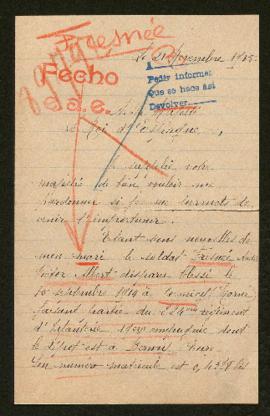 Fresnée
Le 21 Novembre 1915
Fecho
d.a.e.
Pedir informes
Que se hace así
Devolver
A sa Majesté
le Roi d'Espagne,
Je supplie votre
majesté de bien vouloir me
pardonner si je me permets de
venir l'importuner.
Etant sans nouvelles de
mon mari le soldat Fresnée
Victor Albert disparu blessé le
10 septembre 1914 à (Marne)
faisant partie du 224ème régiment
d'Infanterie 19ème compagnie dont
le dépôt est à Bernay, Eure.
Son numéro matricule est 0,4378